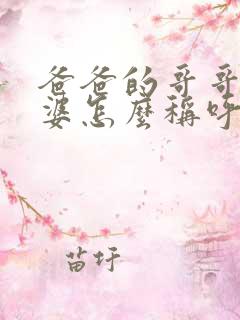 爸爸的哥哥
婆怎麼稱呼
苗圩